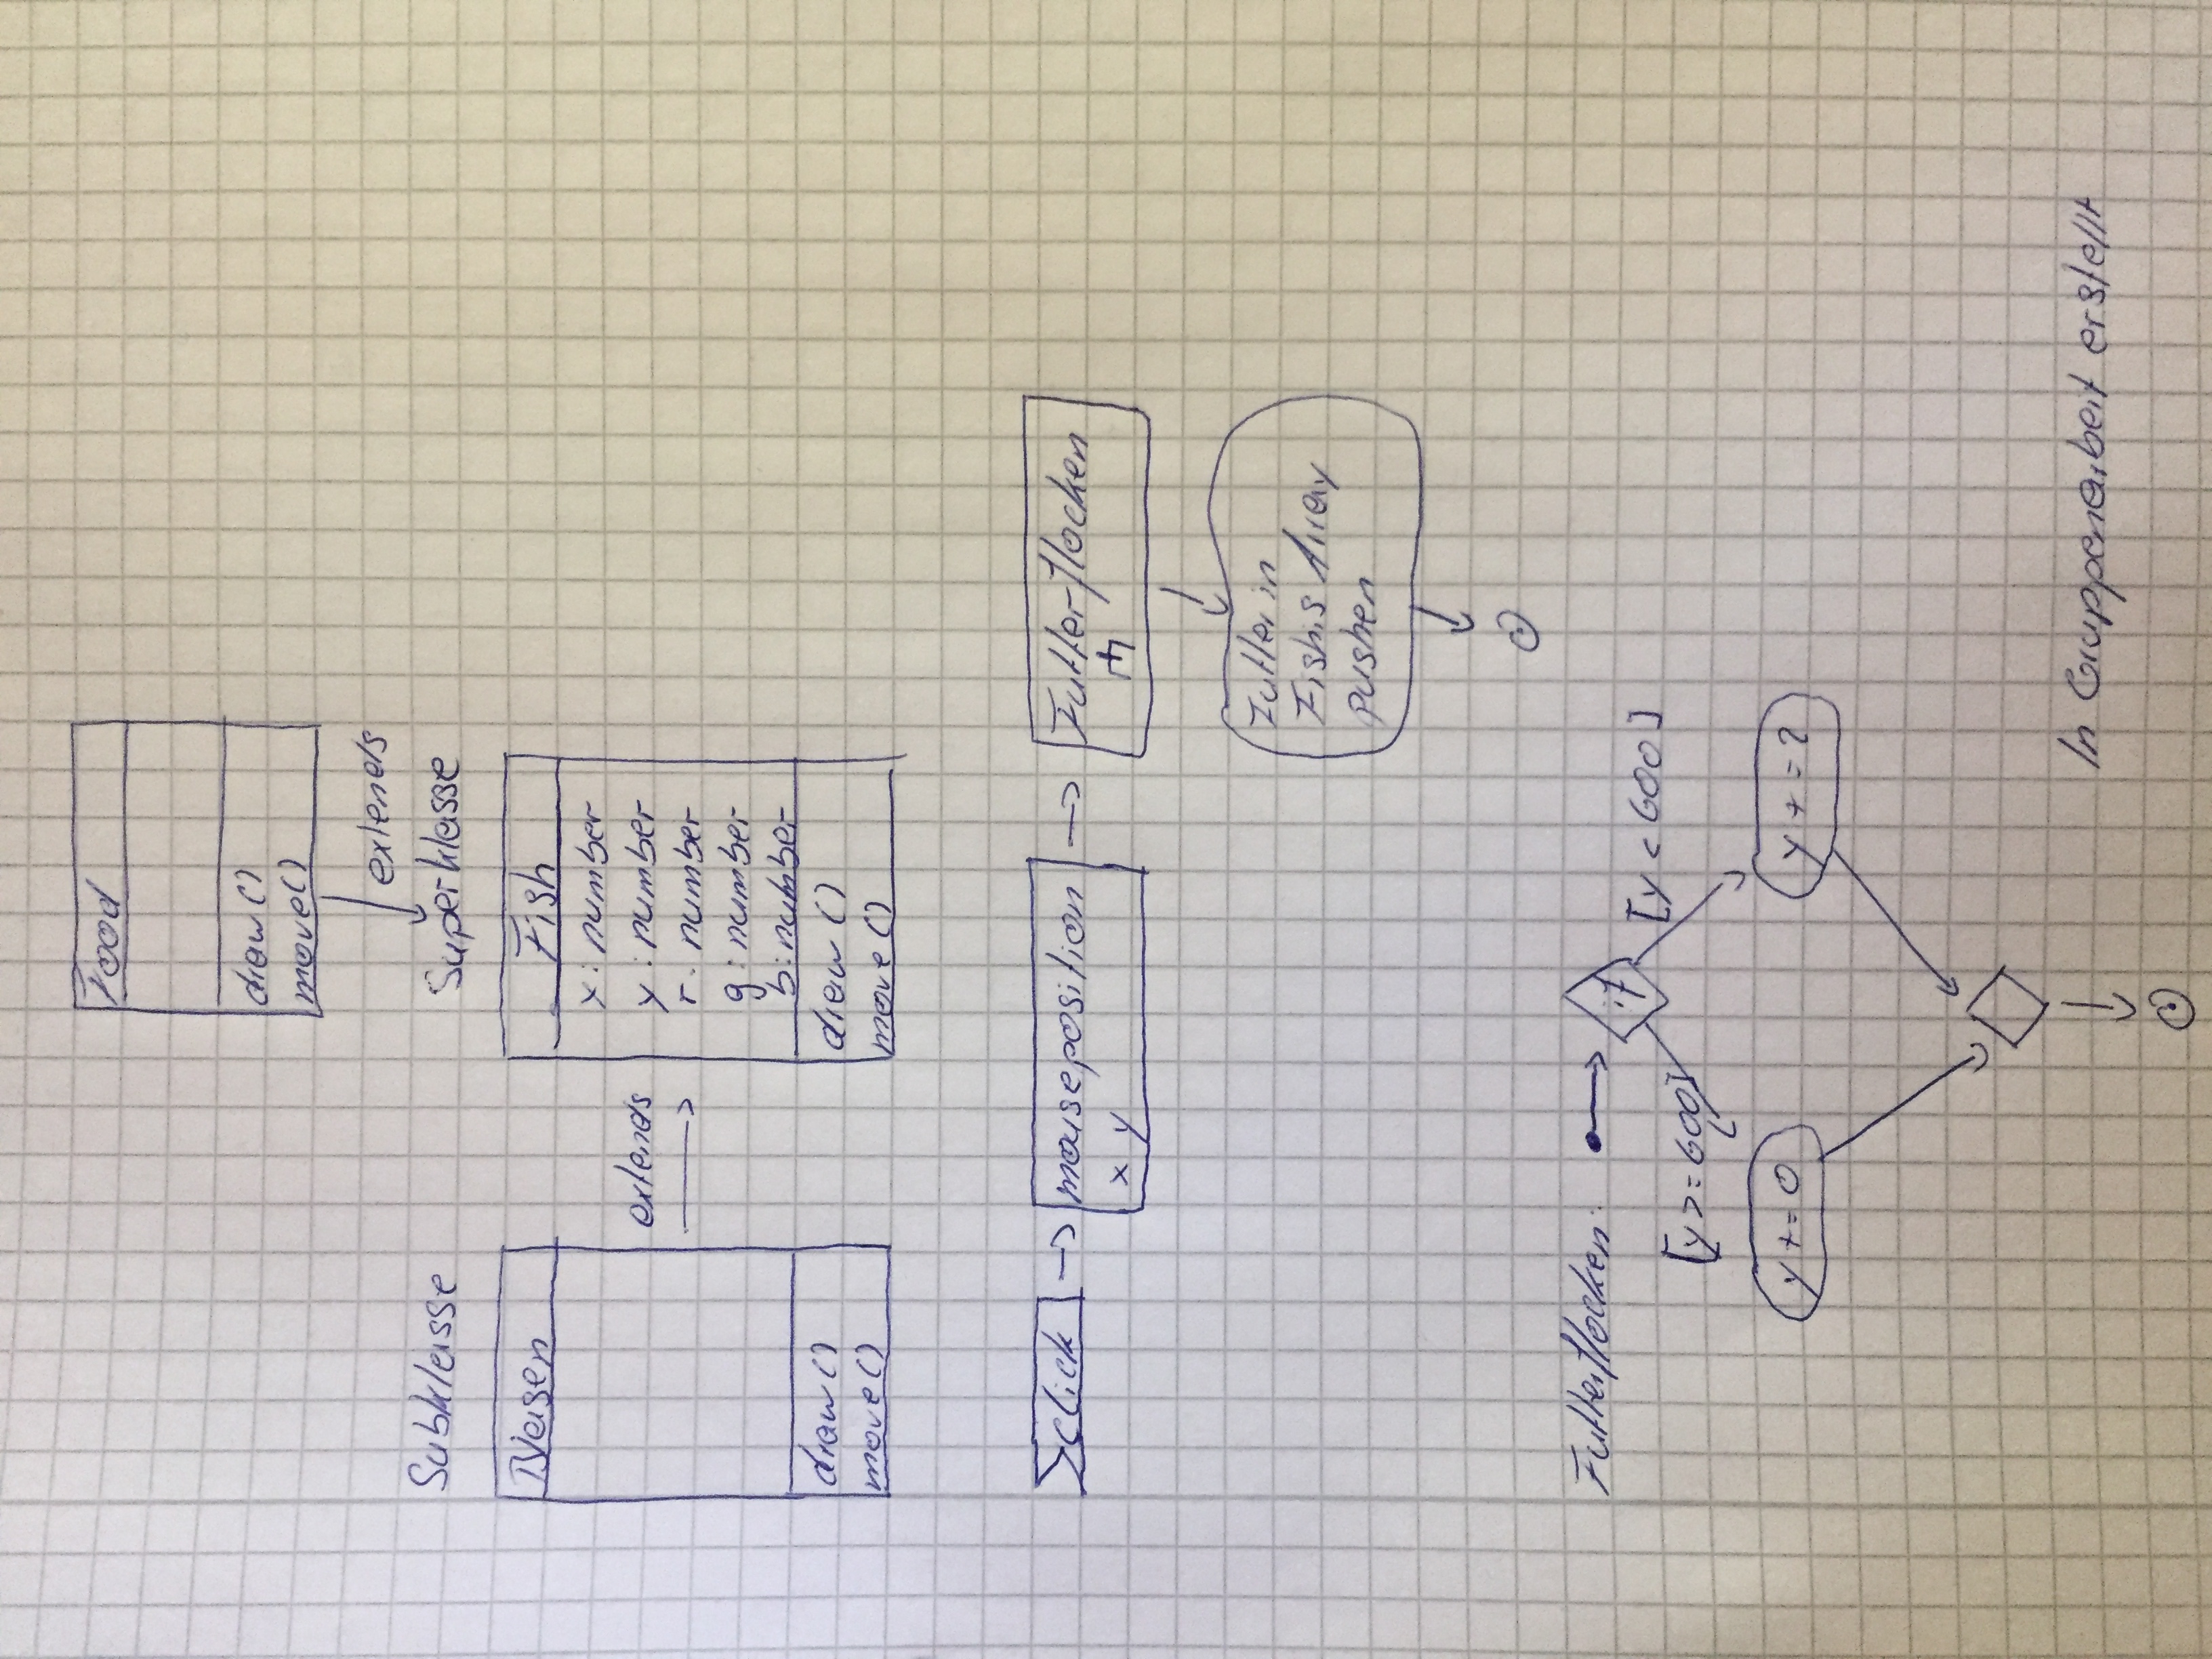 Food
draw ()
move ()
extends
Subklasse
Superklasse
Blasen
Fish
x : number
y : number
r : number
g : number
b : number
extends
draw ()
move ()
draw ()
move ()
click
mouseposition
x y
Futterflocken
Futter in
Fishis Array
pushen
Futterflocken:
if
[y < 600]
[y >= 600]
y += 0
y += 2
In Gruppenarbeit erstellt